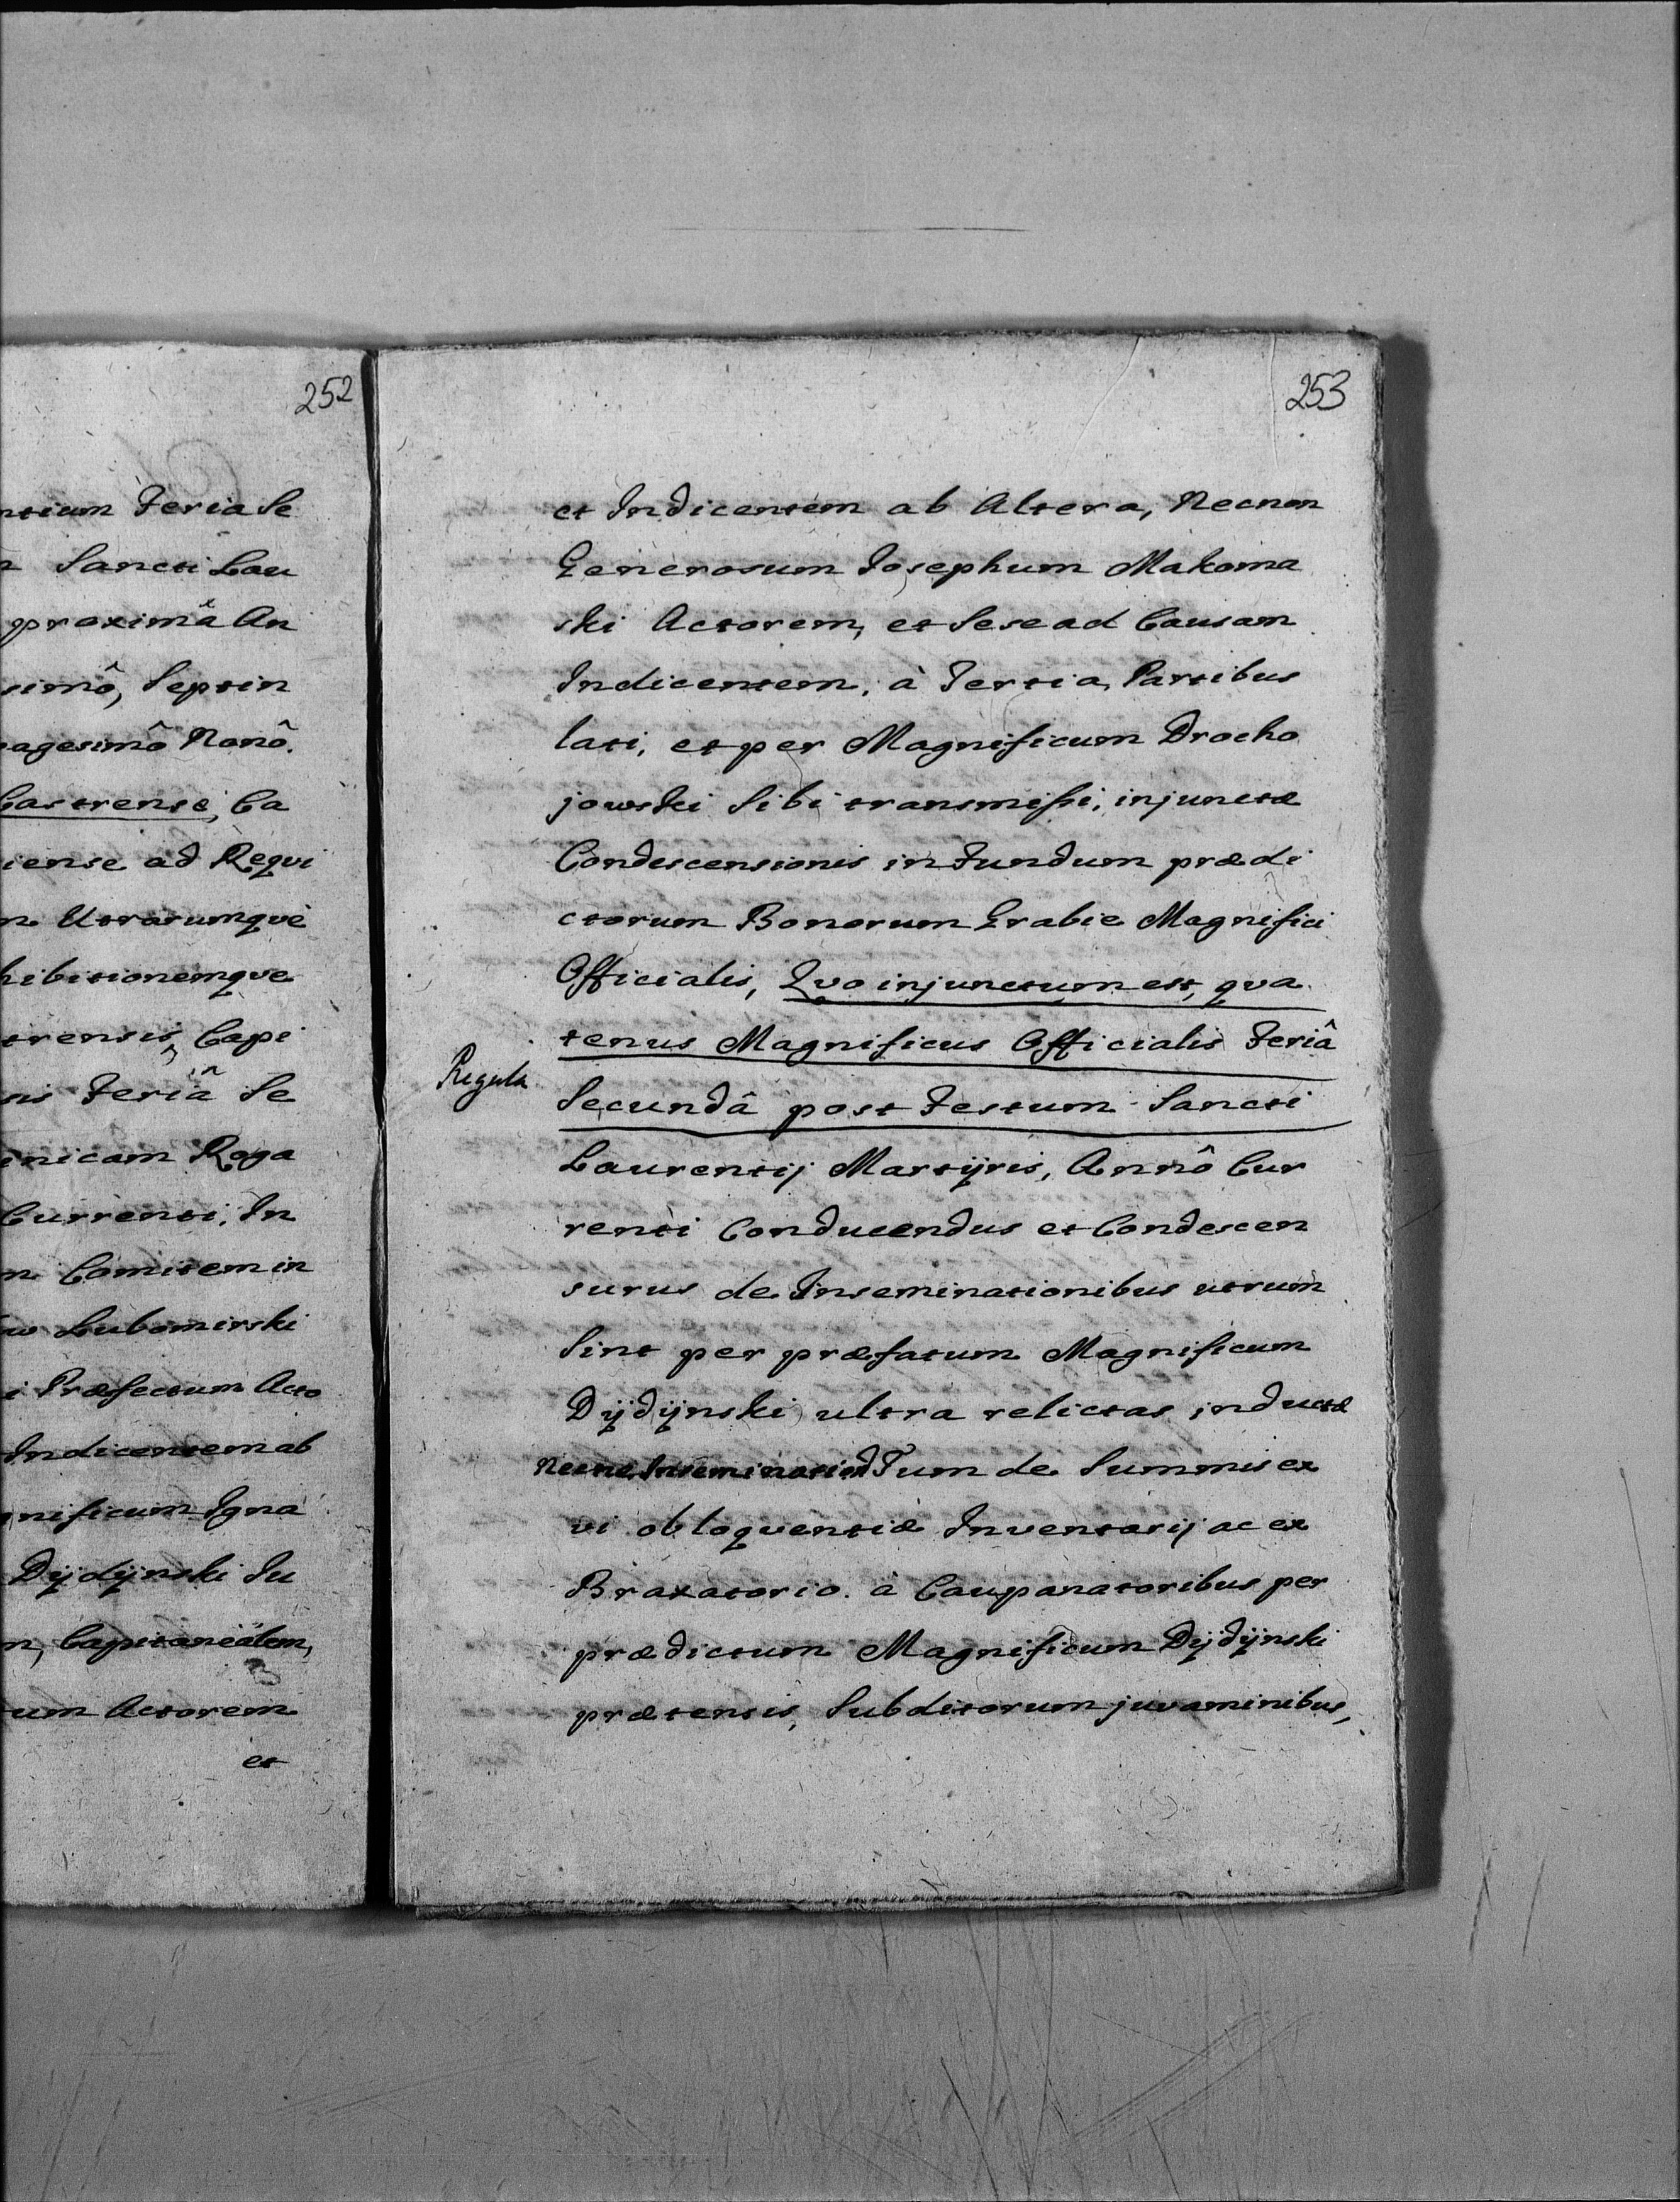 252
ntium Feria Se
Sancti Lau
proximâ An
simô, Septin
agesimô Nonô.
Castrense, Ca
iense ad Reqvi
Utrarumqve
hibitionemqve
trensis, Capi
nis Feriâ Se
nicam Roga
Currenti, In
Comitem in
Lubomirski
i Præfectum Acto
Indicentem ab
nificum Igna
Dÿdÿnski Iu
n, Capitaneälem,
um Actorem
et
253
et Indicentem ab Altera, Necnon
Generosum Josephum Makoma
ski Actorem, et Sese ad Causam
Indicentem, à Tertia, Partibus
lati, et per Magnificum Drocho
jowski Sibi transmissi, injunctæ
Condescensionis in Fundum prædi
ctorum Bonorum Grabie Magnifici
Officialis, Qvo injunctum est, qva
tenus Magnificus Officialis Feriâ
Regula
Secundâ post Festum Sancti
Laurentij Martÿris, Annô Cur
renti Conducendus et Condescen
surus de Inseminationibus utrum
Sint per præfatum Magnificum
Dÿdÿnski ultra relictas inductæ
Necne Tum de Summis ex
vi obloqventiæ Inventarij ac ex
Braxatorio à Caupanatoribus per
prædictum Magnificum Dÿdÿnski
prætensis, Subditorum juvaminibus,